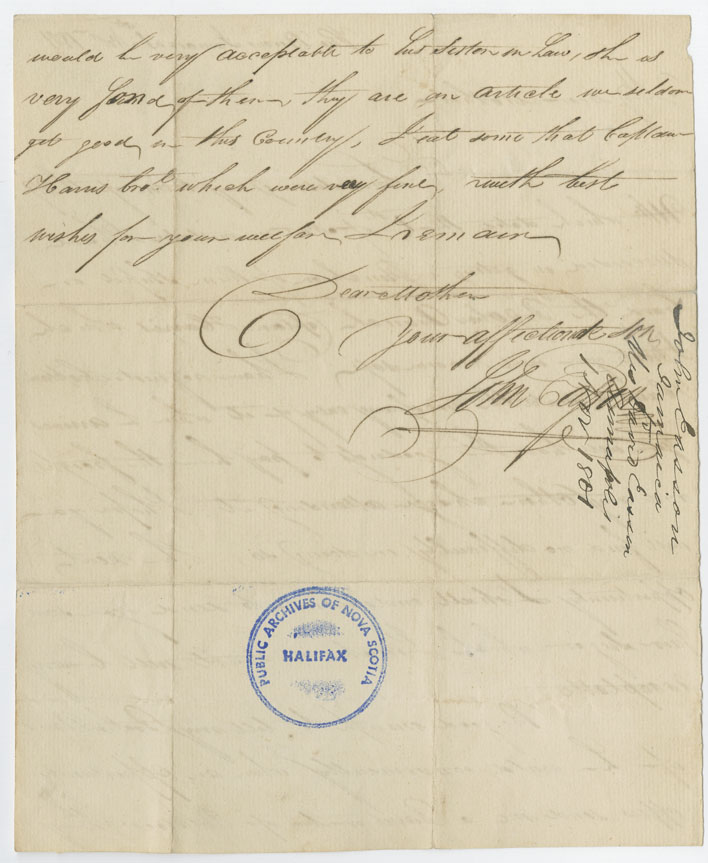 would be very acceptable to his Sister in Law, she is
very fond of them, they are an article we seldom
get good in this Country, I eat some that Captain
Harris bro.t which were very fine, with best
wishes for your welfare I remain
Dear Mother
Your affectionate Son
John Easson
John Easson
Jamaica
Mrs David Easson
Annapolis
1801
PUBLIC ARCHIVES OF NOVA SCOTIA
HALIFAX